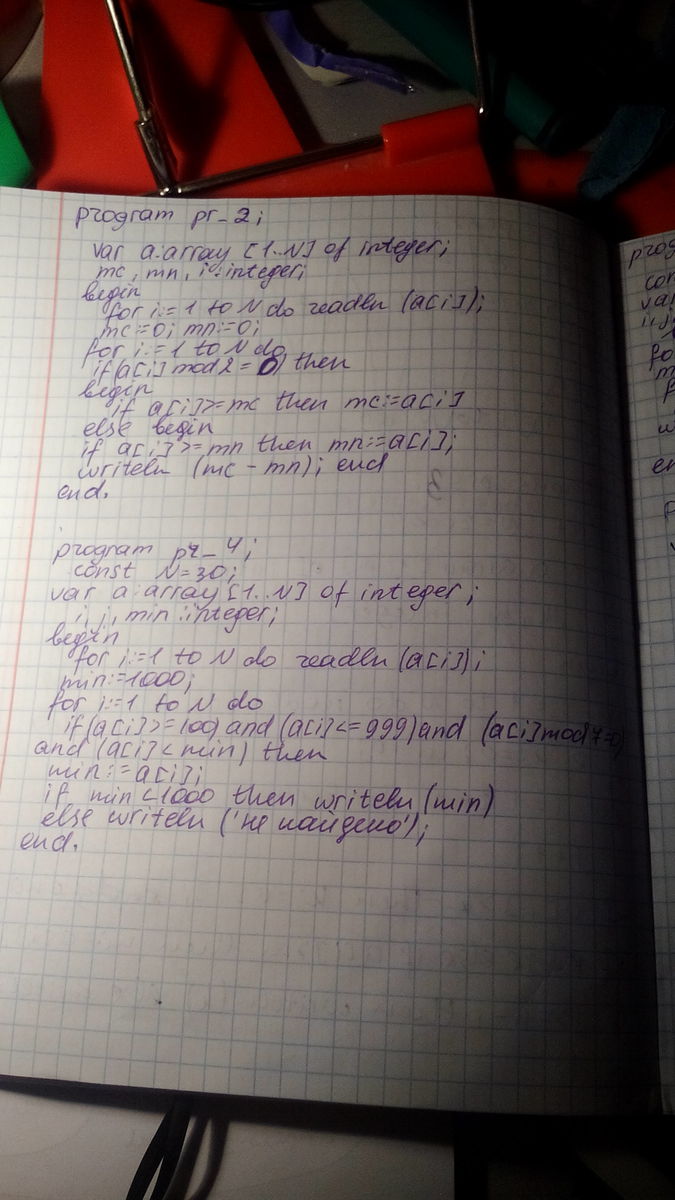 program pr_2;
var a:array [1..N] of integer;
mc, mn, i:integer;
begin
for i:=1 to N do readln (a[i]);
mc:=0; mn:=0;
for i:=1 to N do
if(a[i] mod 2 = 0) then
begin
if a[i]>=mc then mc:=a[i]
else begin
if a[i]>=mn then mn:=a[i];
writeln (mc - mn); end
end.
program pr_4;
const N=30;
var a:array [1..N] of integer;
i, j, min:integer;
begin
for i:=1 to N do readln (a[i]);
min:=1000;
for i:=1 to N do
if(a[i]>=100) and (a[i]<=999) and (a[i] mod 7=0)
and (a[i]<min) then
min:=a[i];
if min<1000 then writeln (min)
else writeln ('не найдено');
end.
prog
con
var
i,j
fo
m
f
w
en